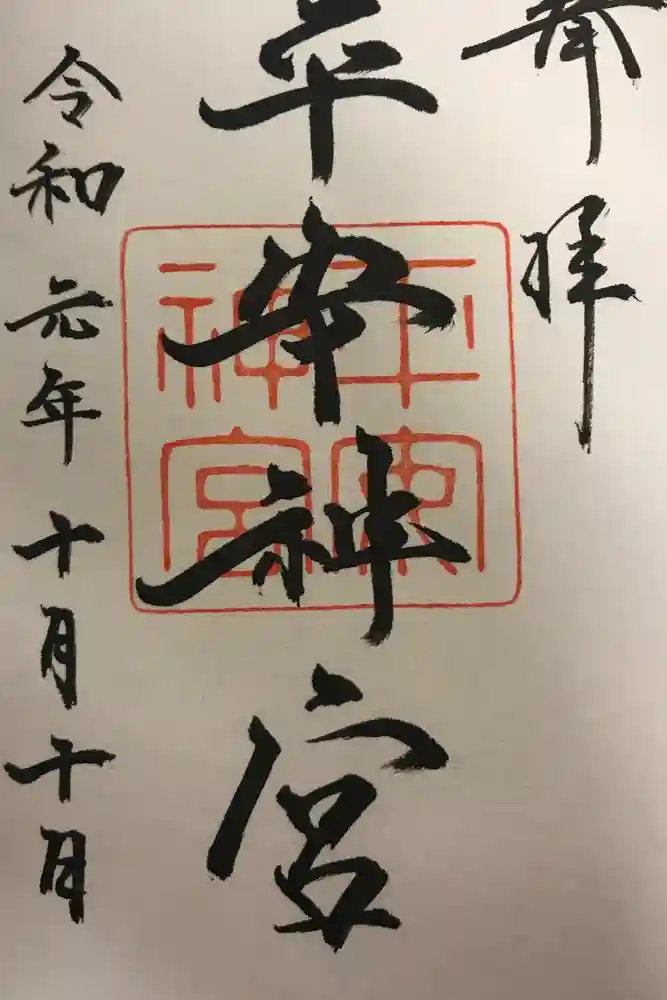 奉拝
平安神宮
平安神宮
令和元年十月十日